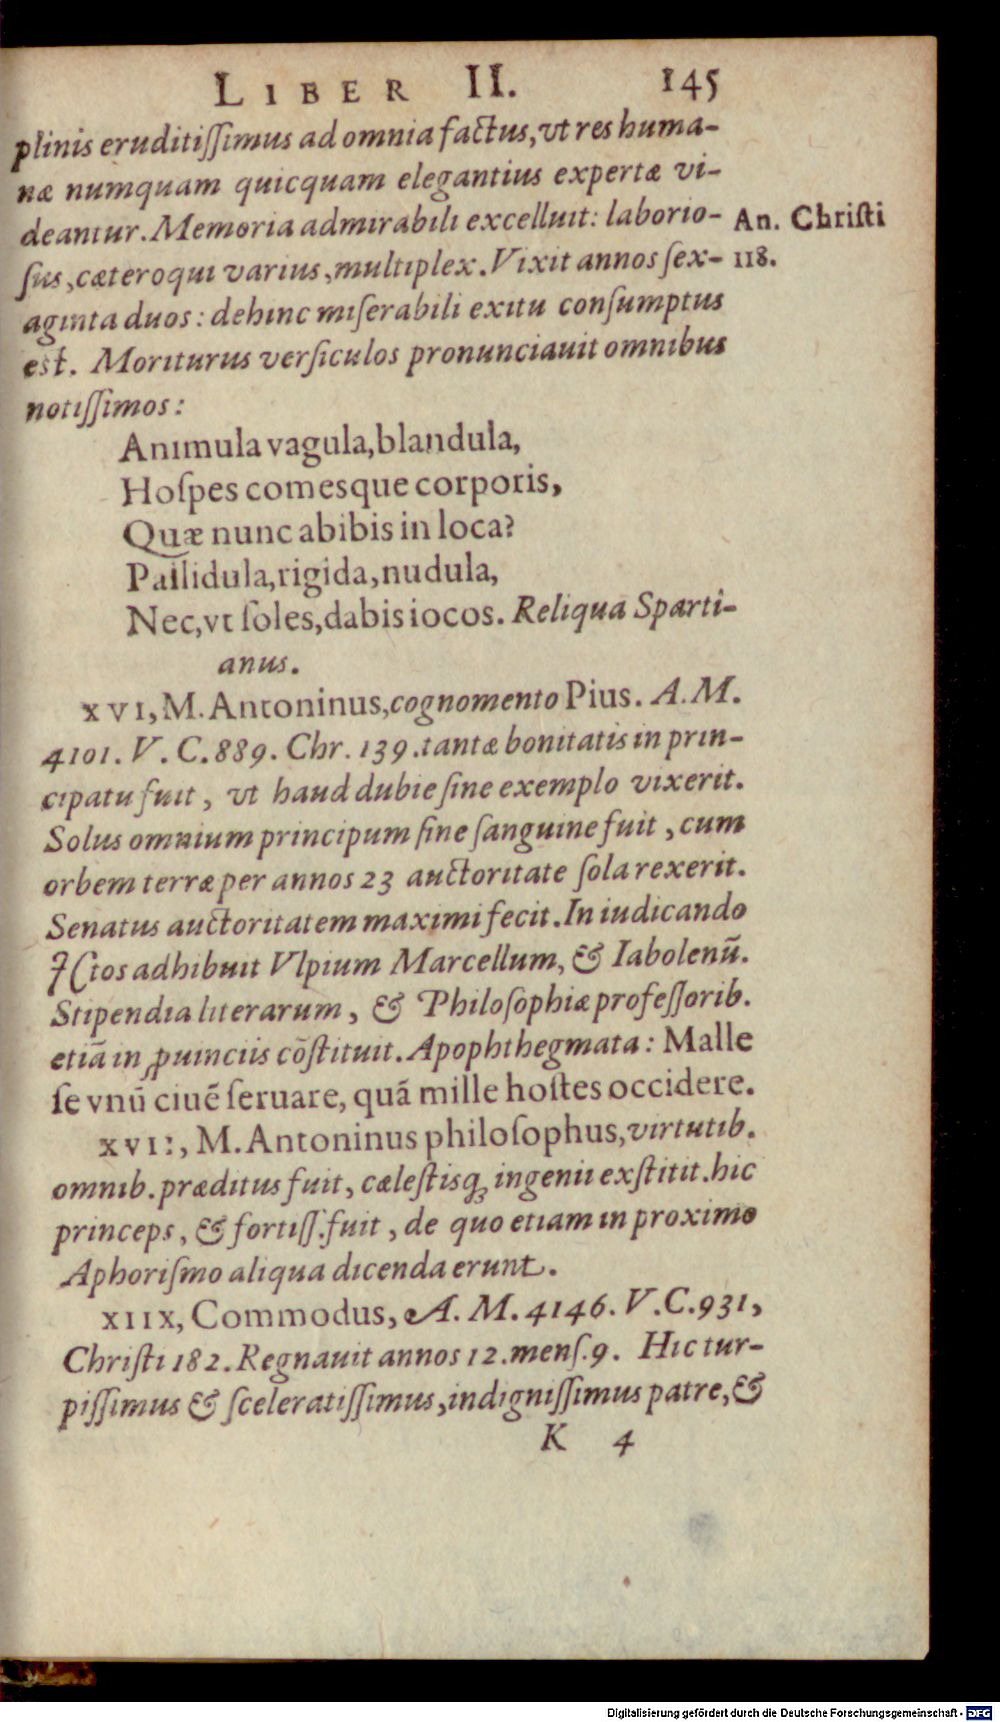 LIBER II. 145
plinis eruditiſſimus ad omnia factus, vt res huma-
næ numquam quicquam elegantius expertæ vi-
deantur. Memoria admirabili excelluit: laborio-
An. Chriſti
118.
ſus, cæteroqui varius, multiplex. Vixit annos ſex-
aginta duos: dehinc miſerabili exitu conſumptus
est. Moriturus verſiculos pronunciauit omnibus
notiſſimos:
Animula vagula, blandula,
Hoſpes comesque corporis,
Quæ nunc abibis in loca?
Pallidula, rigida, nudula,
Nec, vt ſoles, dabis iocos. Reliqua Sparti-
anus.
XVI, M. Antoninus, cognomento Pius. A. M.
4101. V. C. 889. Chr. 139. tantæ bonitatis in prin-
cipatu fuit, vt haud dubie ſine exemplo vixerit.
Solus omnium principum ſine ſanguine fuit, cum
orbem terræ per annos 23 auctoritate ſola rexerit.
Senatus auctoritatem maximi fecit. In iudicando
JCtos adhibuit Vlpium Marcellum, & Iabolenū.
Stipendia literarum, & Philoſophiæ profeſſorib.
etiā in ꝓuinciis cōſtituit. Apophthegmata: Malle
ſe vnū ciuē ſeruare, quā mille hoſtes occidere.
XVII, M. Antoninus philoſophus, virtutib.
omnib. præditus fuit, cæleſtisq; ingenii exſtitit. hic
princeps, & fortiſſ. fuit, de quo etiam in proximo
Aphoriſmo aliqua dicenda erunt.
XIIX, Commodus, A. M. 4146. V. C. 931,
Chriſti 182. Regnauit annos 12. menſ. 9. Hic tur-
piſſimus & ſceleratiſſimus, indigniſſimus patre, &
K 4
Digitalisierung gefördert durch die Deutsche Forschungsgemeinschaft - DFG